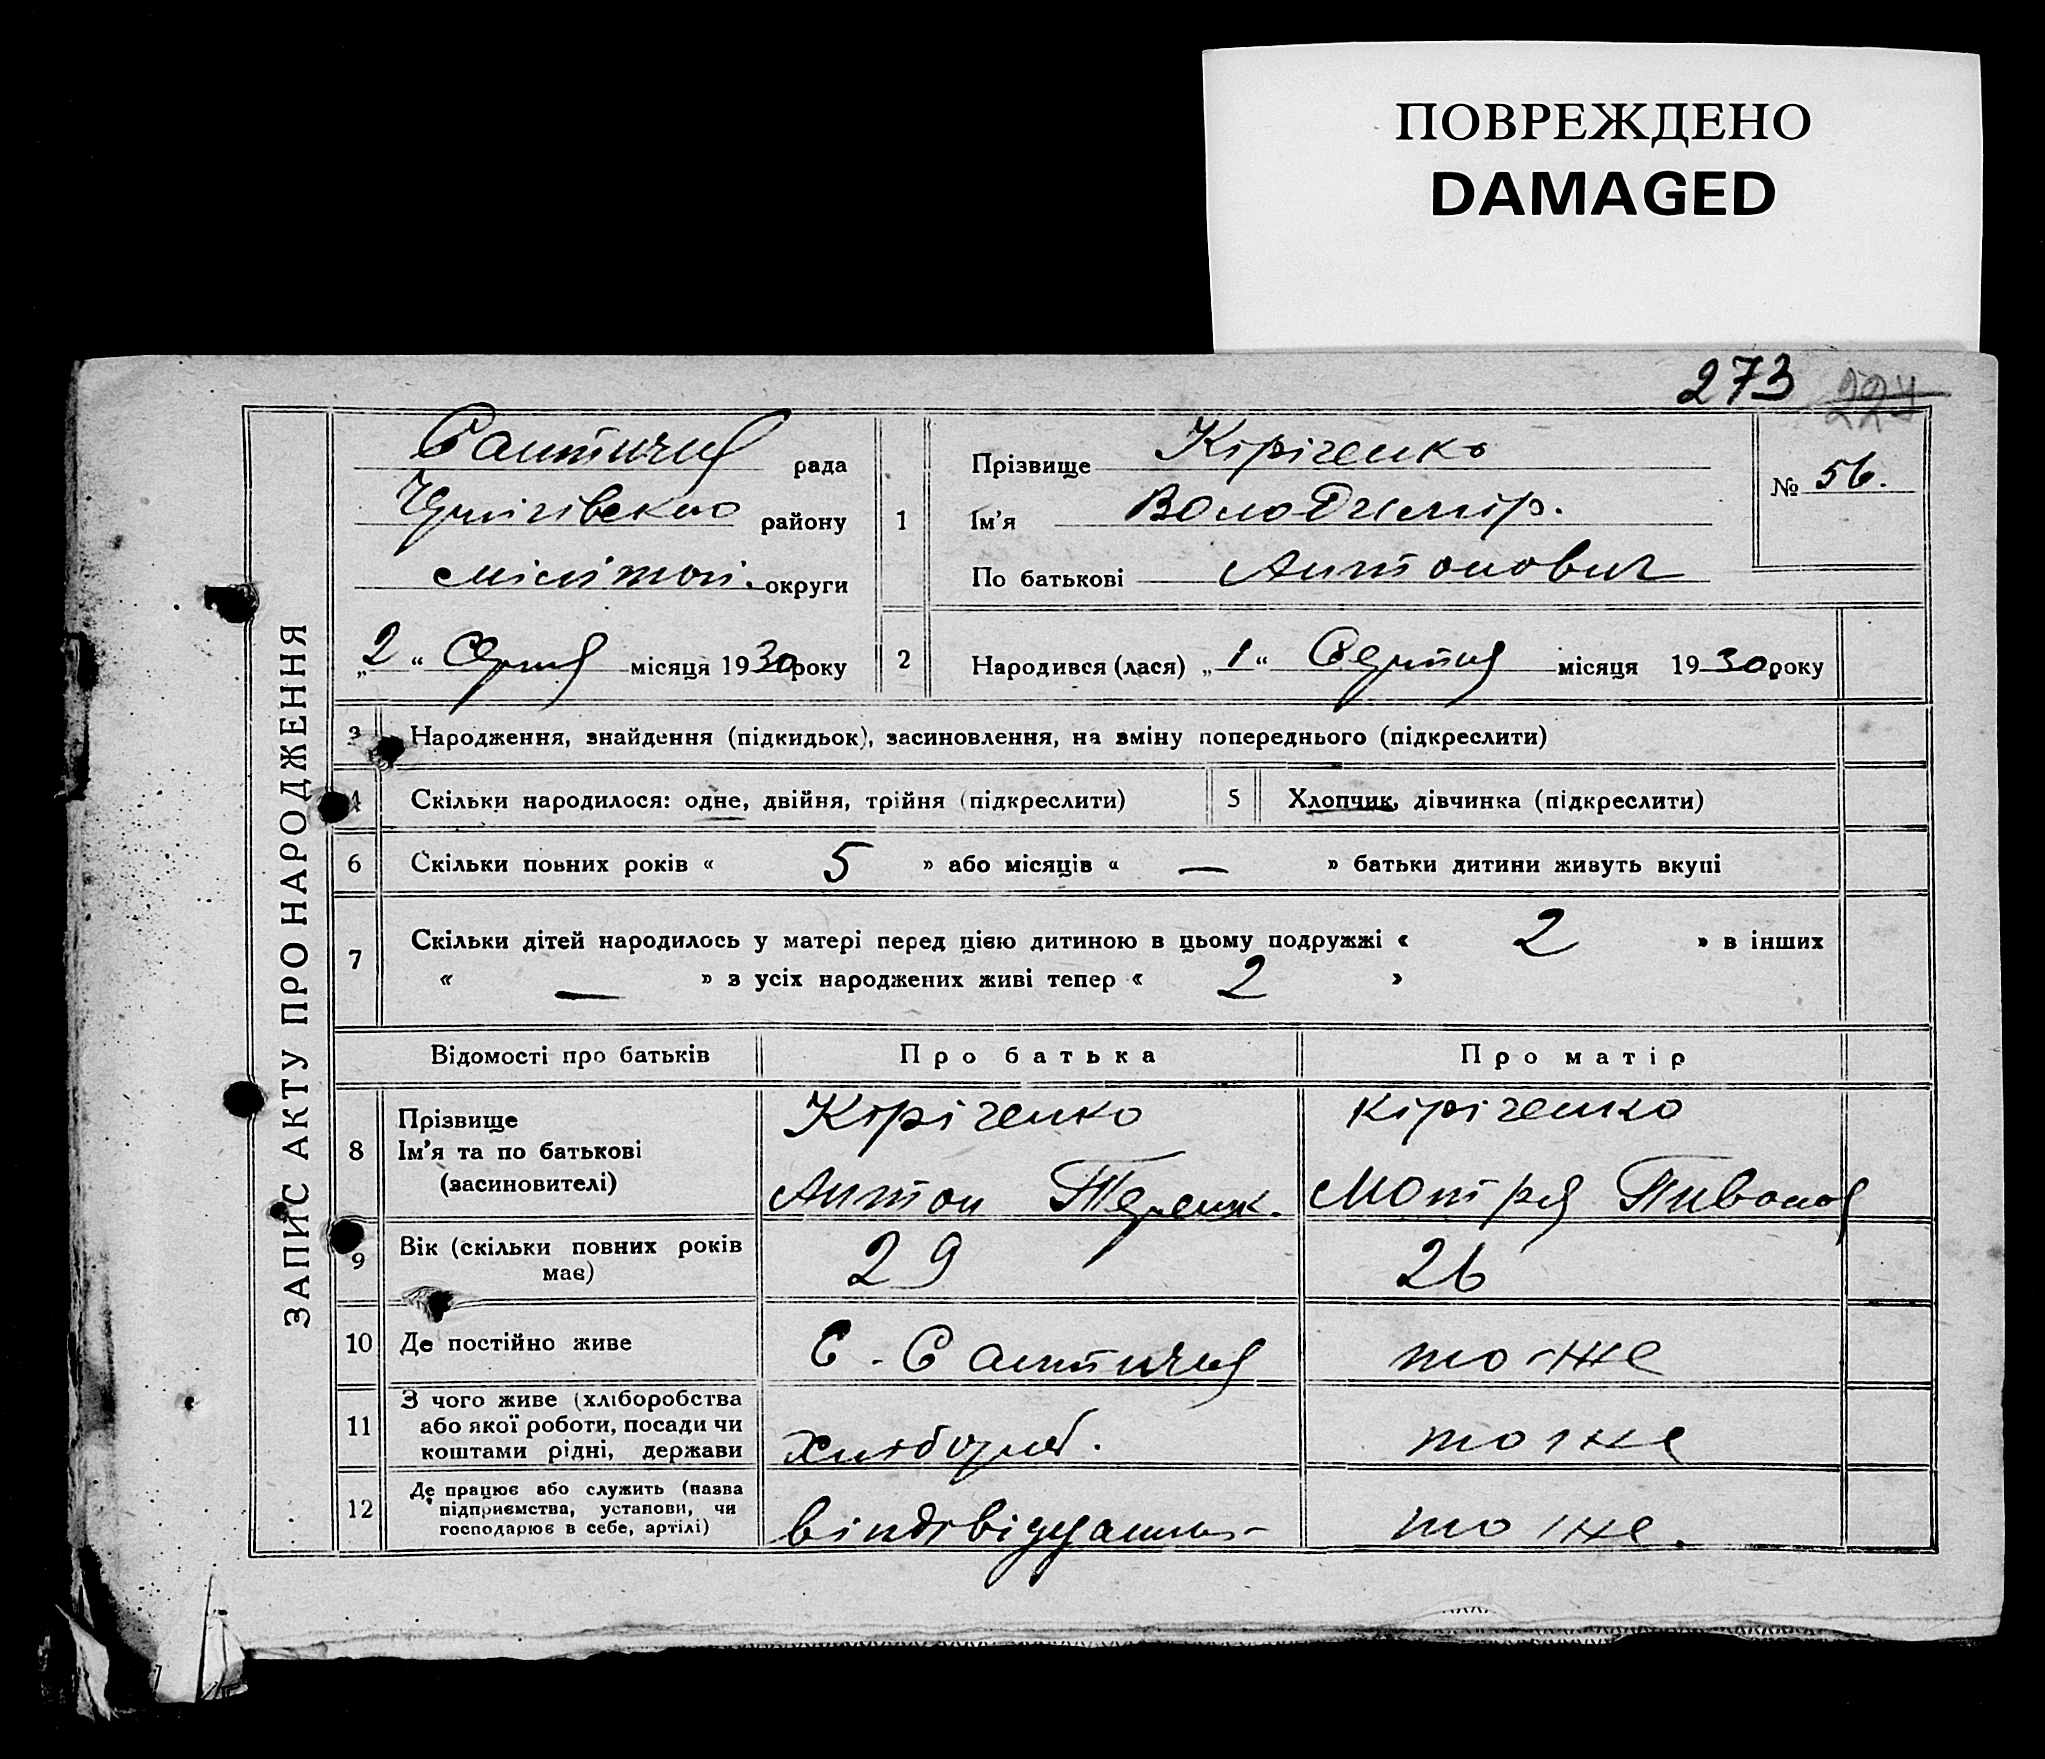 ПОВРЕЖДЕНО
DAMAGED
273 224
ЗАПИС АКТУ ПРО НАРОДЖЕННЯ
рада
району
округи
„2“ Серпня місяця 1930 року
1 Прізвище Кіріченко
Ім'я Володимір.
По батькові Антонович
№ 56.
2 Народився (лася) „1“ Серпня місяця 1930 року
3 Народження, знайдення (підкидьок), засиновлення, на зміну попереднього (підкреслити)
4 Скільки народилося: одне, двійня, трійня (підкреслити) 5 Хлопчик, дівчинка (підкреслити)
6 Скільки повних років « 5 » або місяців « — » батьки дитини живуть вкупі
7 Скільки дітей народилось у матері перед цією дитиною в цьому подружжі « 2 » в інших
« — » з усіх народжених живі тепер « 2 »
Відомості про батьків Про батька Про матір
8 Прізвище Кіріченко Кіріченко
Ім'я та по батькові
(засиновителі) Антон Терент. Мотря Пивона
9 Вік (скільки повних років 29 26
має)
10 Де постійно живе С. тоже
11 З чого живе (хліборобства
або якої роботи, посади чи
коштами рідні, держави хлібороб. тоже
12 Де працює або служить (назва
підприємства, установи, чи
господарює в себе, артілі) тоже.